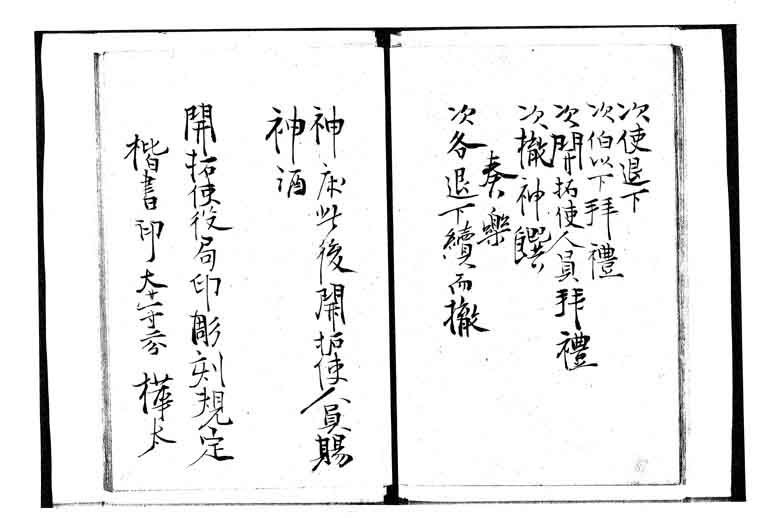 次使退下
次伯以下拜禮
次開拓使人員拜禮
次撤神饌
奏樂
次各退下續而撤
神床此後開拓使人員賜
神酒
開拓使役局印彫刻規定
楷書印 大サ二寸二分 樺太
87